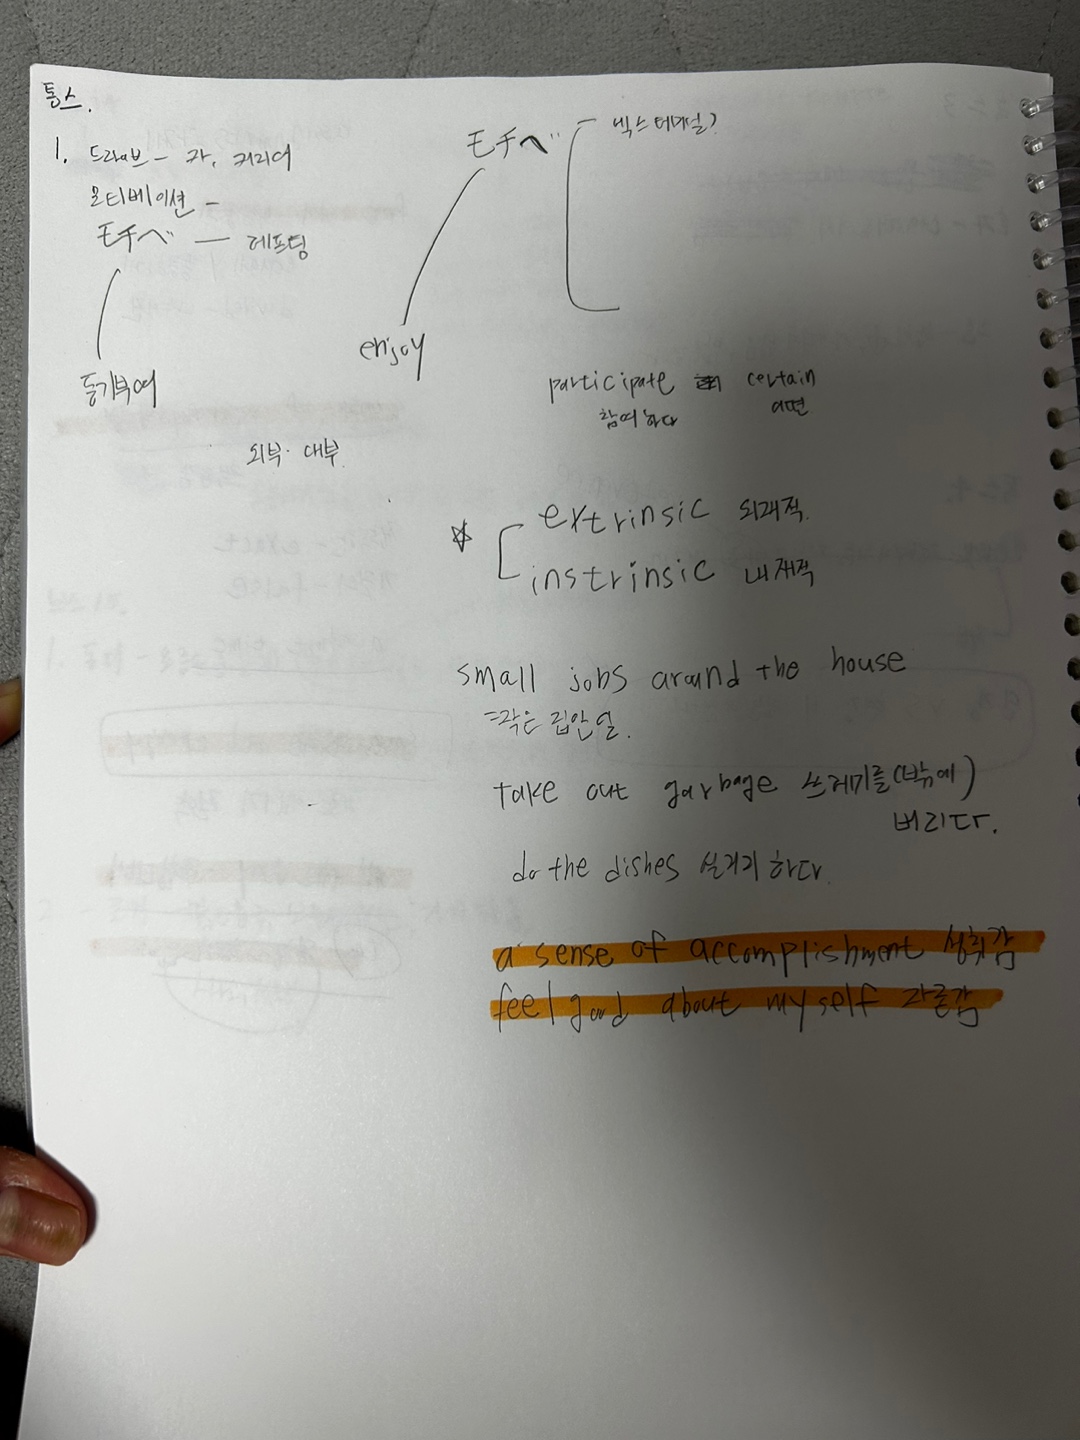 톰스.
1. 드라이브 - 카, 커리어
모티베이션 -
モチベ — 데프팅
동기부여
モチベ
enjoy
엑스터널?
participate certain
참여하다 어떤
외부. 내부.
extrinsic 외재적.
instrinsic 내재적
small jobs around the house
=작은 집안일.
take out garbage 쓰레기를(밖에)
버리다.
do the dishes 설거지 하다.
a sense of accomplishment 성취감
feel good about myself 자존감